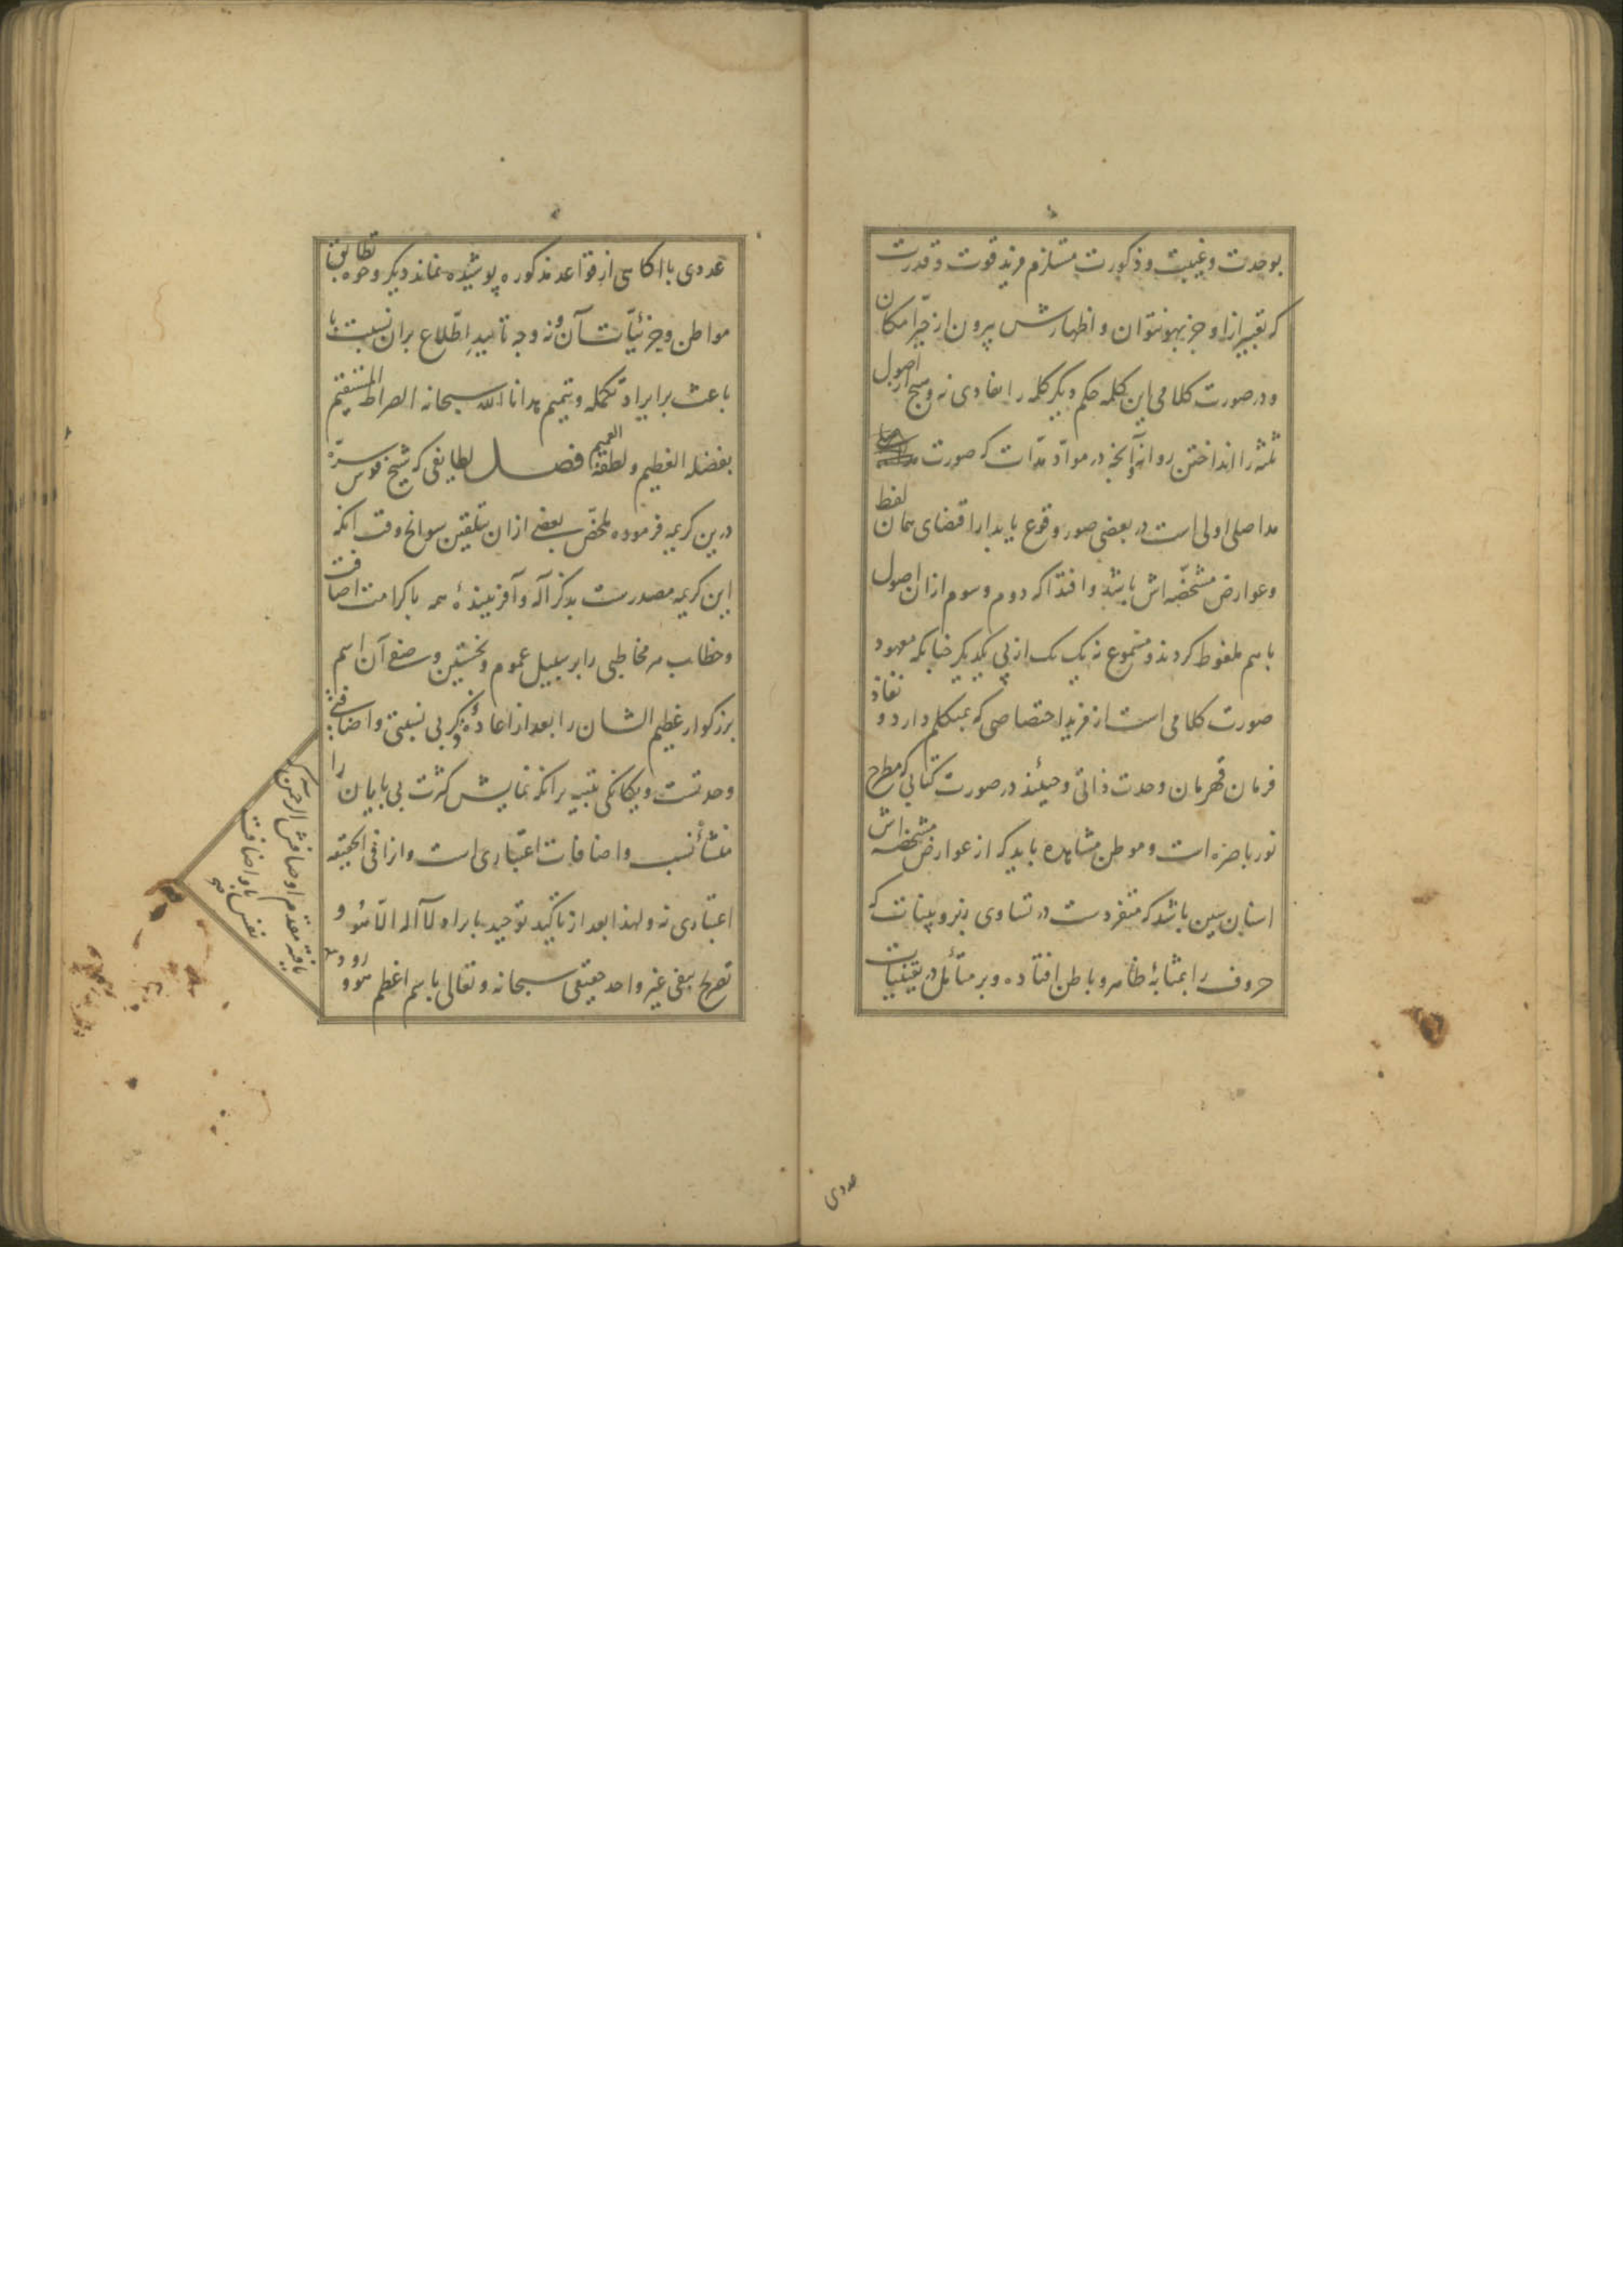 بوحدت و غیبت و ذکورت مستلزم مزید قوت و قدرت
که تعبیر ازاو جز بهو نتوان و اظهارش بیرون از حیز امکان
و در صورت کلامی این کلمه حکم دیگر کلمه را نه و هیچ از اصول
ثلثه را انداختن روا نه و آنچه در مواد مدات که صورت
مد اصلی اولی است در بعضی صور وقوع یابد از اقتضای همان لفظ
و عوارض مشخصه اش باشد و افتد اکه دوم و سوم ازان اصول
باهم ملفوظ کردند و مسموع نه یک یک از پی یکدیگر چنانکه معهود
صورت کلامی است از مزید اختصاصی که بمتکلم دارد و نفاذ
فرمان قهرمان وحدت ذاتی و حینئذ در صورت کتابی که مطرح
نور باصره است و موطن مشاهده باید که از عوارض مشخصه اش
اسنان سین باشد که متفردست در تساوی زبر و بینات که
حروف را بمثابهٔ ظاهر و باطن افتاده و بر متأمل در
عددی
عددی با اکاهی از قواعد مذکوره پوشیده نماند دیکر وجوه تطابق
مواطن و جزئیات آن و نه وجه تأیید اطلاع بران نسبت با
باعث بر ایراد تکمله و تتمیم هدانا الله سبحانه الصراط المستقیم
بفضله العظیم و لطفه العمیم فصل لطایفی که شیخ قدس سره
درین کریمه فرموده ملخص بعضی ازان بتلقین سوانح وقت آنکه
این کریمه مصدرست بذکر آله و آفریننده همه با کرامت اضافت
و خطاب هر مخاطبی را بر سبیل عموم و نخستین وصفی آن اسم
بزرکوار عظیم الشان را بعد از اعادهٔ ذکر بی نسبتی و اضافتی
وحدتست و یکانکی تنبیه برانکه نمایش کثرت بی پایان را
منشأ نسب و اضافات اعتباری است و ازا فی الحقیقه
اعتباری نه و لهذا بعد از تأکید توحید بایراد لا آله الا هو و
تصریح بنفی غیر واحد حقیقی سبحانه و تعالی باسم اعظم هو و
الرحمن